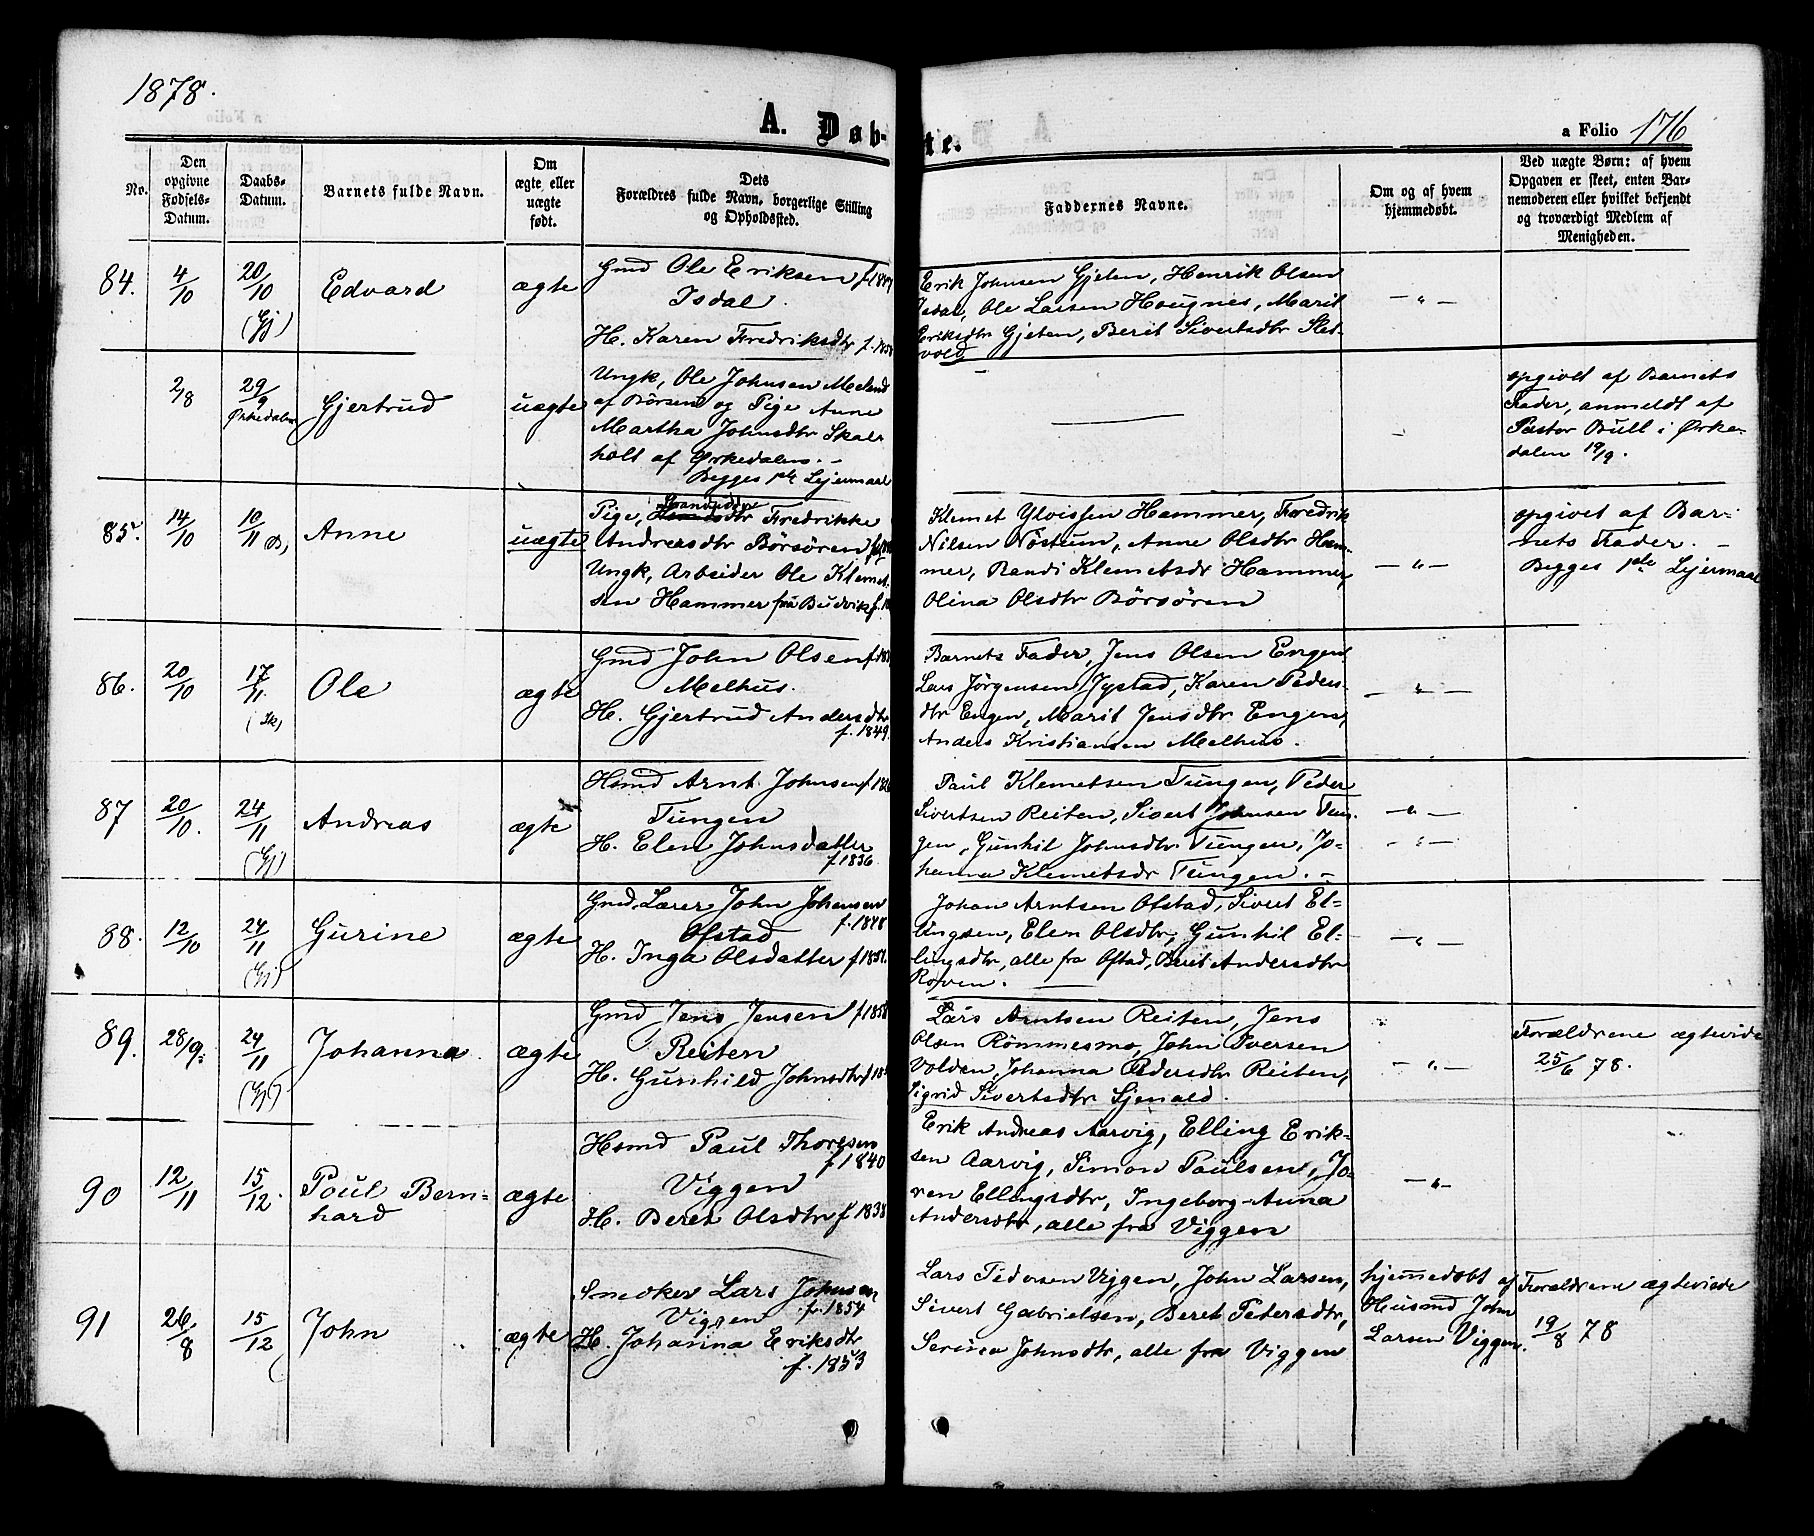 1878.
A. Døb-
te.
a Folio 176
No.
Den
opgivne
Fødsels-
Datum.
Daabs-
Datum.
Barnets fulde Navn.
Om
ægte eller
uægte
født.
Dets
Forældres fulde Navn, borgerlige Stilling
og Opholdssted.
Faddernes Navne.
Om og af hvem
hjemmedøbt.
Ved uægte Børn: af hvem
Opgaven er skeet, enten Bar-
nemoderen eller hvilket bekjendt
og troværdigt Medlem af
Menigheden.
84.
4/10
20/10
(Gj)
Edvard
ægte
Gmd Ole Eriksen
Isdal.
H. Karen Fredriksdtr
Erik Johnsen Gjeten, Henrik Olsen
Isdal, Ole Larsen Hougnes, Marit
Eriksdtr Gjeten, Berit Sivertsdtr Slet-
vold
— " —
2/8
29/9
Ørkedalen
Gjertrud
uægte
Ungk, Ole Johnsen
af Børsen og Pige Anne
Martha Johnsdtr Skal-
holt af Ørkedalen. -
Begges 1ste Lejermaal
opgivet af Barnets
Fader, anmeldt af
Pastor Bull i Ørke-
dalen 19/9.
85.
14/10
10/11 (B)
Anne
uægte
Pige, Fredrikke
Andersdtr Börsören
Ungk, Arbeider Ole Klemet-
sen Hammer fra Budvik
Klemet Hammer, Fredrik
Nilsen Nöstum, Anne Olsdtr Ham-
mer, Randi Klemetsdr Hammer,
Olina Olsdtr Börsören
— " —
opgivet af Bar-
nets Fader. -
Begges 1ste Lejermaal
86.
20/10
17/11
(Sk)
Ole
ægte
Gmd John Olsen
Melhus.
H. Gjertrud Andersdtr
f. 1849.
Barnets Fader, Jens Olsen Engen
Lars Jörgensen Jystad, Karen Peders-
dtr Engen, Marit Jensdtr Engen,
Anders Kristiansen Melhus.
— " —
87
20/10.
24/11
(Gj)
Andreas
ægte
Hsmd Arnt Johnsen
Tungen
H. Elen Johnsdatter
f. 1836.
Paul Klemetsen Tungen, Peder
Sivertsen Reiten, Sivert Johnsen Tun-
gen, Gunhil Johnsdtr Tungen, Jo-
hanna Klemetsdr Tungen. -
— " —
88.
12/10
24/11
(Gj)
Gurine
ægte
Gmd, Lærer John Johansen
f. 1848
Ofstad
H. Inga Olsdatter f 1851.
Johan Arntsen Ofstad, Sivert El-
lingsen, Elen Olsdtr, Gunhil El-
lingsdtr, alle fra Ofstad, Berit Andersdtr
— " —
89.
28/9.
24/11
(Gj)
Johanna.
ægte
Gmd Jens Jensen f 1858
Reiten
H. Gunhild Johnsdtr
Lars Arntsen Reiten, Jens
Olsen Römmesmo, John Iversen
Volden, Johanna Pedersdtr Reiten,
Sigrid Sivertsdtr
— " —
Forældrene ægteviede
25/6 78.
90
12/11
15/12.
Poul Bern-
hard
ægte
Hsmd Paul Thoresen
f 1840
Viggen
H. Beret Olsdtr f 1838
Erik Andreas Aarvig, Elling Erik-
sen Aarvig, Simon Paulsen, Jo-
ren Ellingsdtr, Ingeborg-Anna
Andersdtr, alle fra Viggen
— " —
91
26/8
15/12
John
ægte
Snedker Lars Johnsen
f. 1854
Viggen
H. Johanna Eriksdtr
f. 1853
Lars Pedersen Viggen, John Larsen,
Sivert Gabrielsen, Beret Pedersdtr,
Serina Johnsdtr, alle fra Viggen
hjemmedøbt af
Husmd John
Larsen Viggen.
Forældrene ægteviede
19/8 78